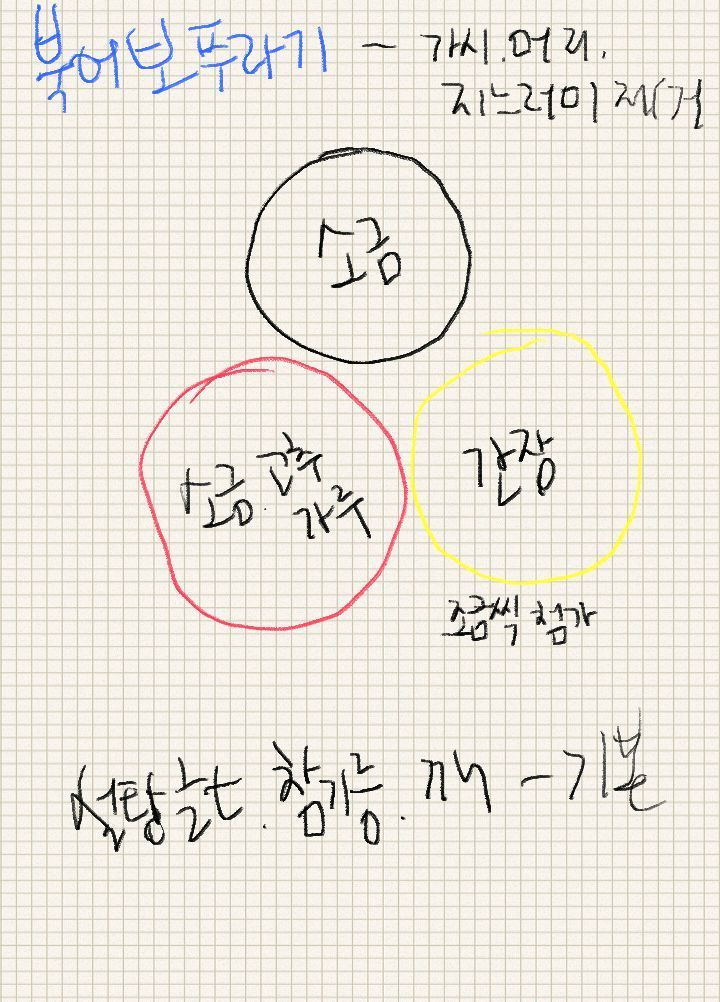 북어보푸라기 - 가시.머리.
지느러미 제거
소금
소금 고추
가루
간장
조금씩 첨가
설탕. 참기름. 깨 - 기본